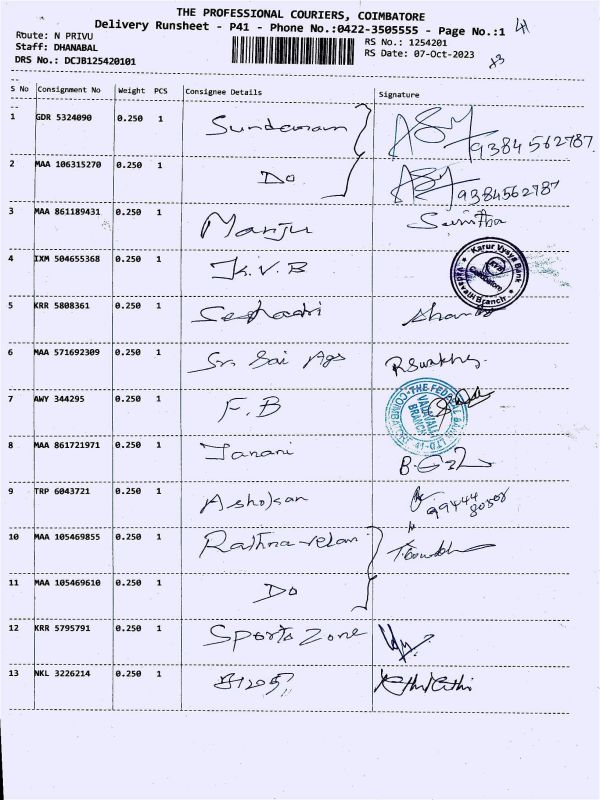 THE PROFESSIONAL COURIERS, COIMBATORE
Delivery Runsheet - P41 - Phone No.:0422-3505555 - Page No.:1 41
Route: N PRIVU
RS No.: 1254201
Staff: DHANABAL
RS Date: 07-Oct-2023
DRS No.: DCJB125420101
S No Consignment No Weight PCS Consignee Details Signature
1 GDR 5324090 0.250 1 Sundaram 9384562787
2 MAA 106315270 0.250 1 Do 9384562787
3 MAA 861189431 0.250 1 Manju Sumitha
4 IXM 504655368 0.250 1 K.V.B Karur Vysya Bank Coimbatore Branch
5 KRR 5808361 0.250 1 Seshadri
6 MAA 571692309 0.250 1 Sri Sai Ags
7 AWY 344295 0.250 1 F.B THE FEDERAL BANK LTD. BRANCH
8 MAA 861721971 0.250 1 Janani
9 TRP 6043721 0.250 1 Ashokan 99444 80508
10 MAA 105469855 0.250 1 Rathna velan
11 MAA 105469610 0.250 1 Do
12 KRR 5795791 0.250 1 Sports Zone
13 NKL 3226214 0.250 1